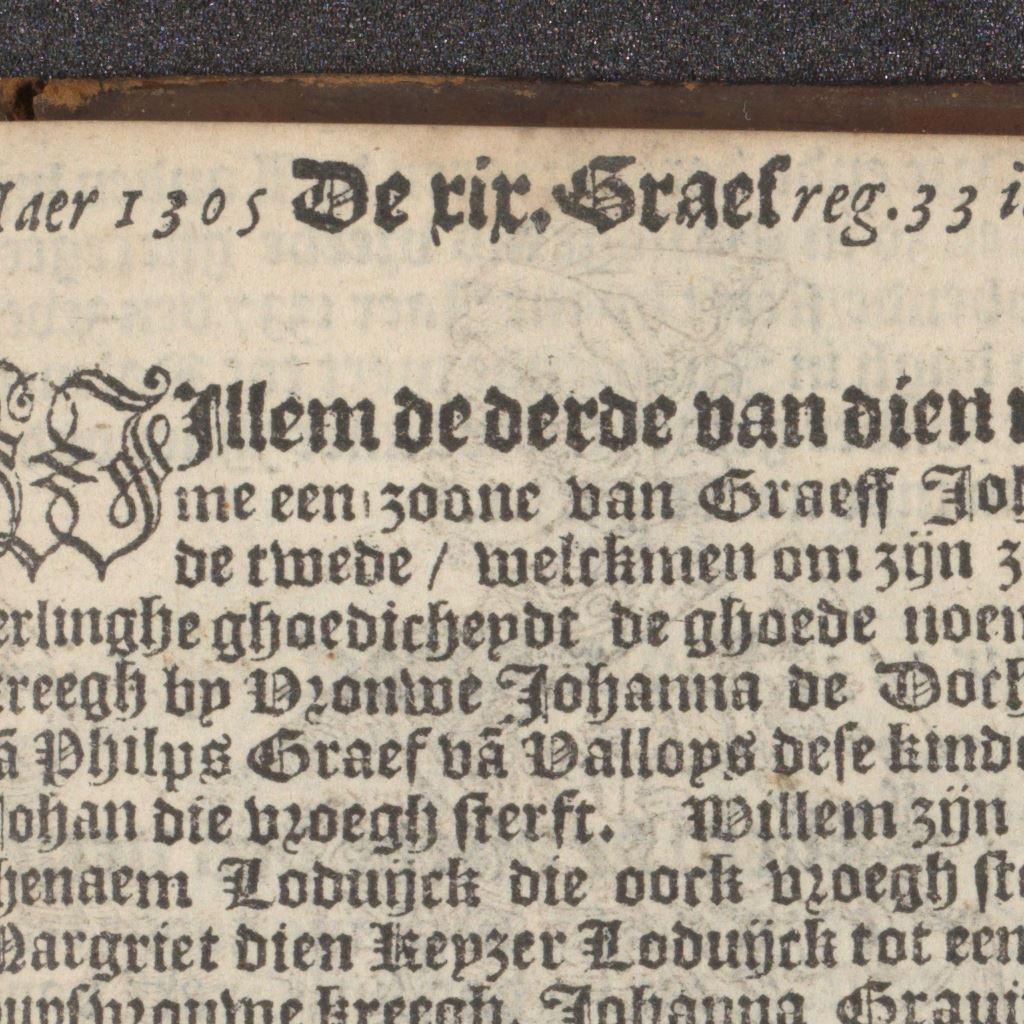 Jaer 1305 De xix. Graef reg. 33
WIllem de derde van dien
me een zoone van Graeff Joh
de twede / welckmen om zijn
erlinghe ghoedicheydt de ghoede noem
creegh by Vrouwe Johanna de Doch
vā Philps Graef vā Valloys dese kinde
Johan die vroegh sterft. Willem zijn
henaem Loduijck die oock vroegh ste
Margriet dien Keyzer Loduijck tot een
huysvrouwe kreegh. Johanna Gravi